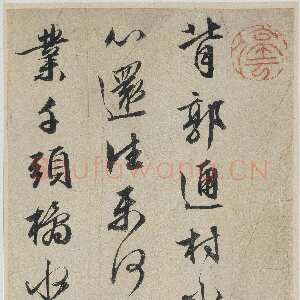 背郭通村小
心還往
業千頭橘
shufawang.CN